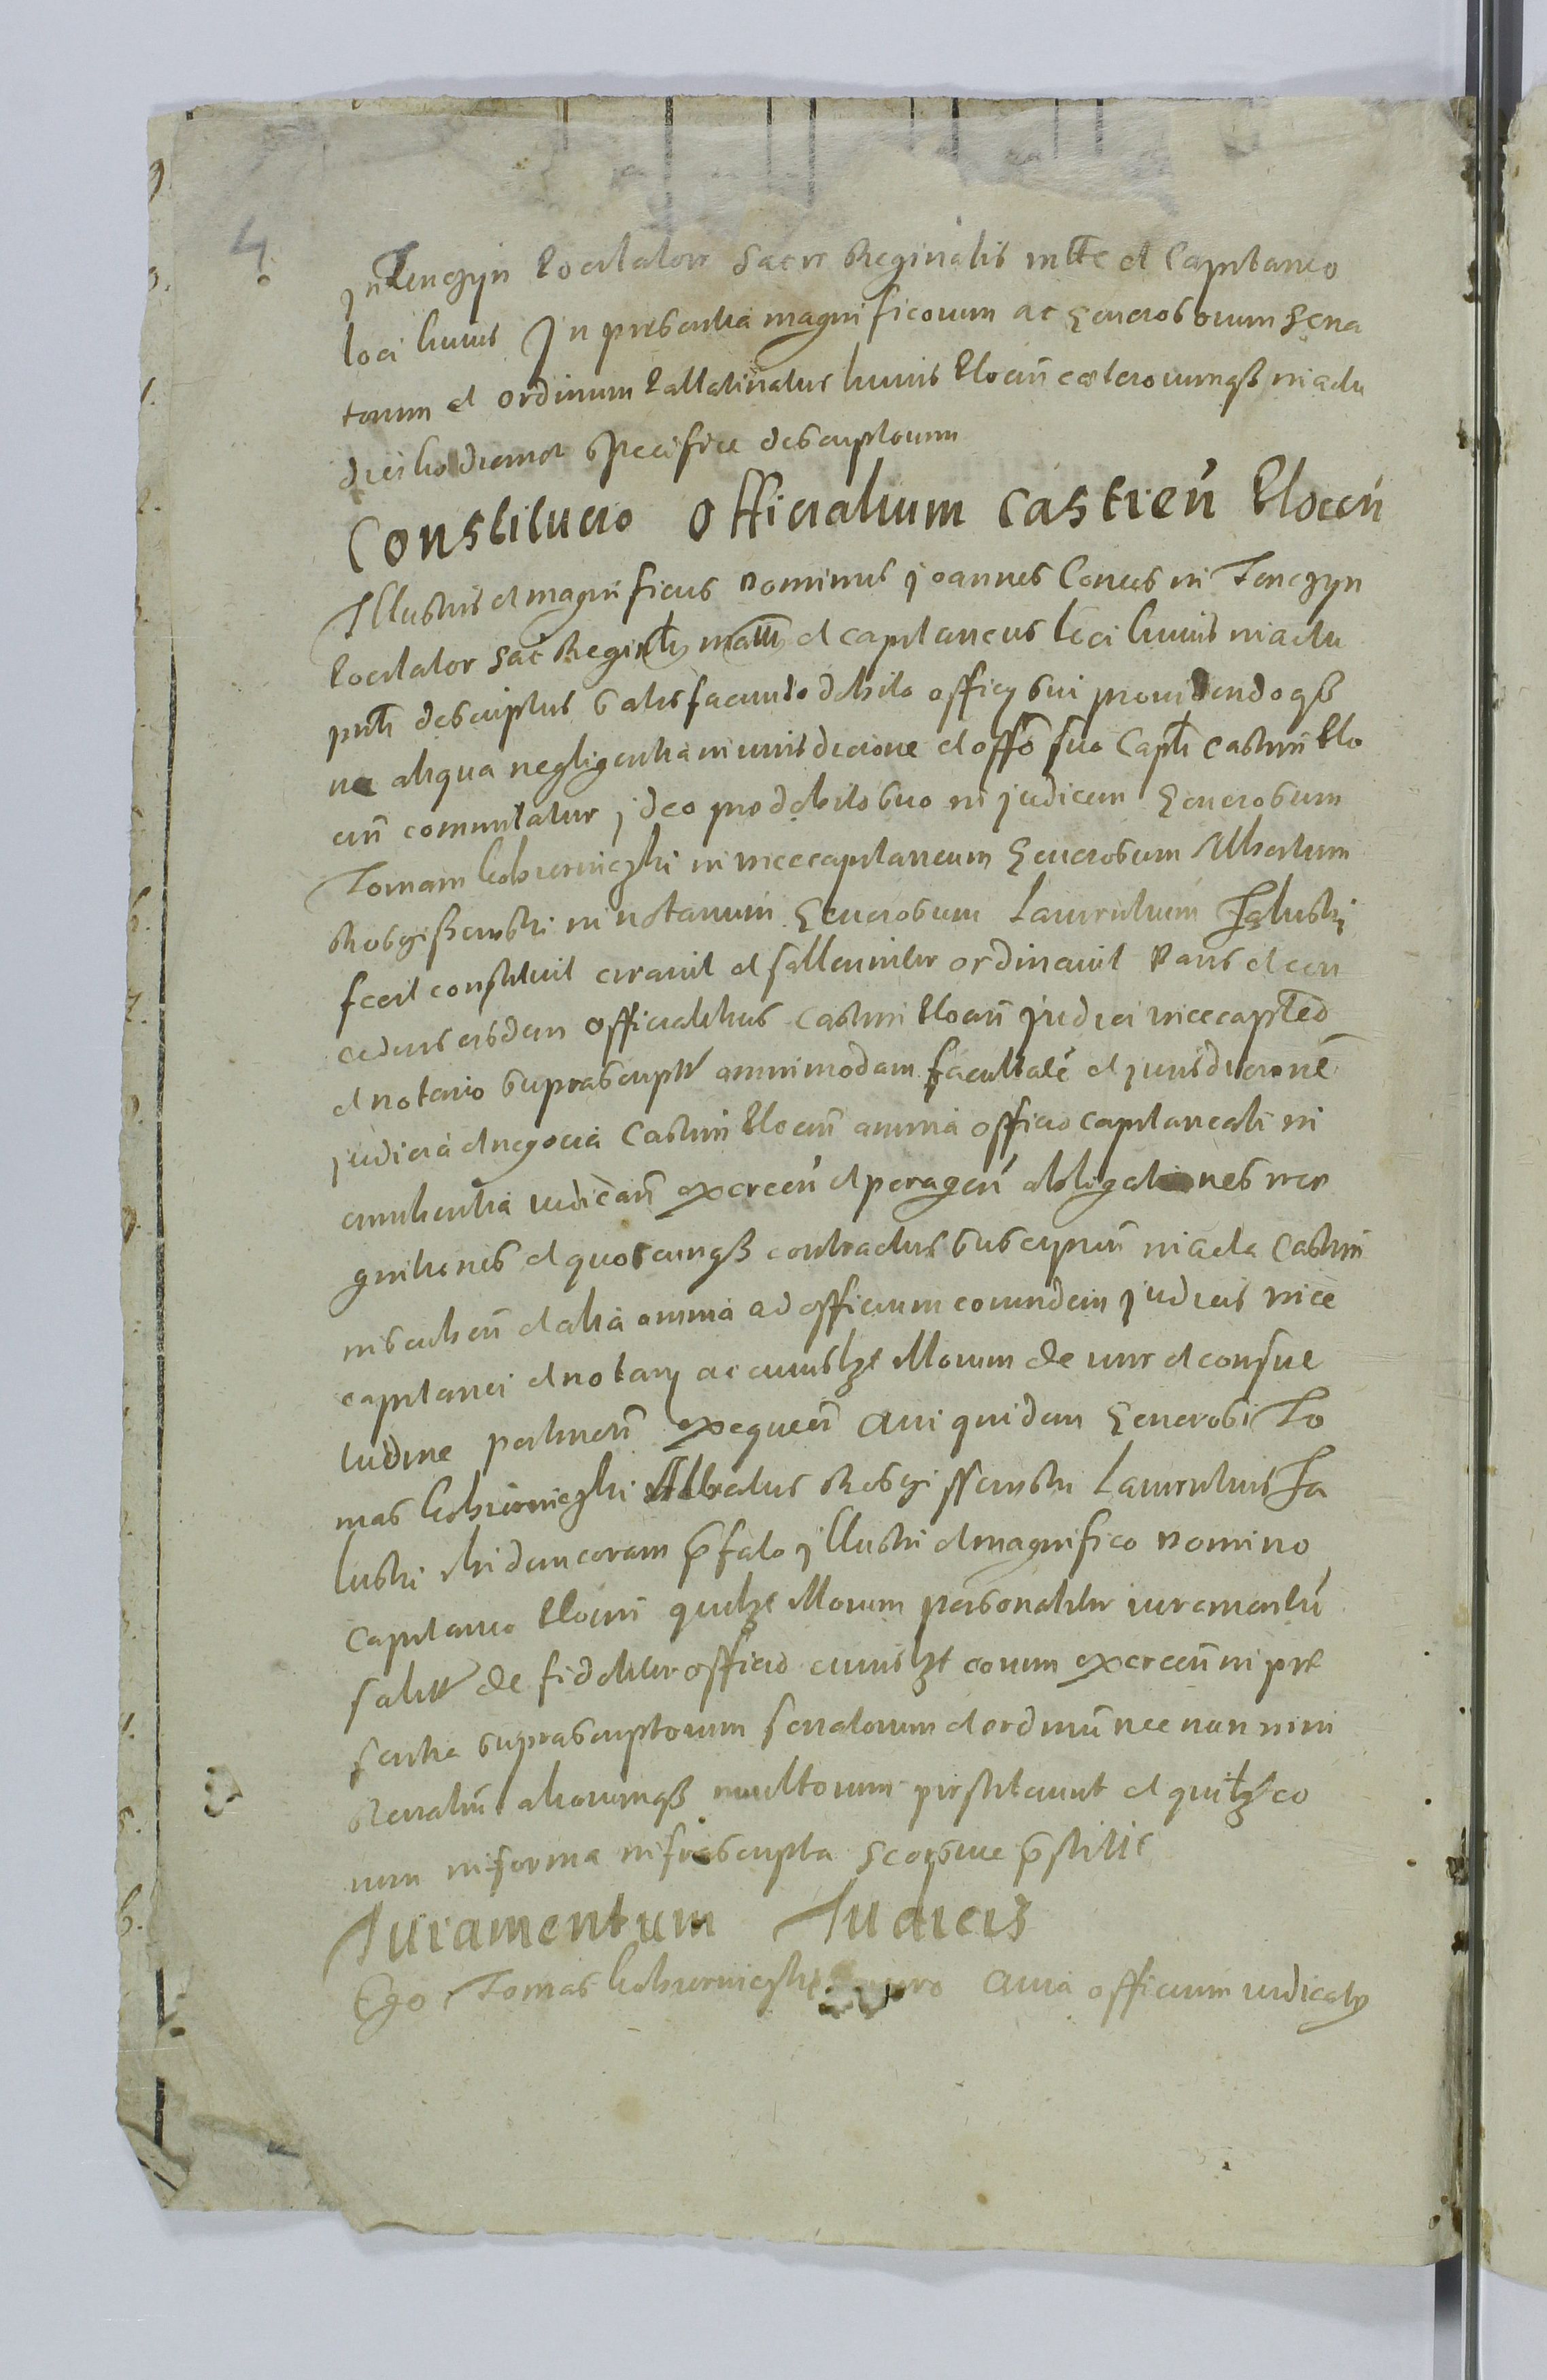 4
in Tenczyn Pocilatore Sacre Reginalis mtte et Capitaneo
loci huius In presentia magnificorum ac Generosorum Sena
torum et ordinum Pallatinatus huius Plocen̄ caeterorumqß in actu
diei hodiernae specifice descriptorum
Constitucio Officialium Castren̄ Plocen̄
Illustris et magnificus Dominus Joannes Comes in Tenczyn
Pocilator Sac Reginlis matis et capitaneus loci huius in actu
pnti descriptus satisfaciendo debito officy sui providendoqß
ne aliqua negligentia in iurisdicione et offo suo Captli castrin̄ Plo
cen̄ comittatur ideo pro debito suo in judicem Generosum
Tomam Kobierniczki in vicecapitaneum Generosum Albertum
Rosczißewski in notarium Generosum Laurentium Zaluski
fecit constituit creavit et sallenniter ordinavit Dans et con
cedens eisdem officialibus castrin̄ Plocen̄ judici vicecapteo
et notario suprascriptis omnimodam facultatē et jurisdicionē
judicia et negocia Castrin̄ Plocen̄ omnia officio capitaneali in
cumbentia iudican̄ exercen̄ et peragen̄ obligationes reco
gnitiones et quoscunqß contractus suscipien̄ in acta Castrin̄
inscriben̄ et alia omnia ad officium eorundem judicis vice
capitanei et notary ac cuiuslibet illorum de iure et consue
tudine pertinen̄ exequen̄ Qui quidem Generosi To
mas Kobierniczki Albertus Rosczissewski Laurentius Za
luski ibidem coram p̄fato illustri et magnifico Domino
Capitaneo Plocen̄ quilibet illorum personaliter iuramentū
salitum de fideliter officio cuiuslibet eorum exercen̄ in pre
sentia suprascriptorum senatorum et ordinū nec non mini
sterialiū aliorumqß multorum prestiterunt et quilibet eo
rum in forma infrascripta seorsive p̄stitit
Juramentum Judicis
Ego Tomas Kobierniczki iuro Quia officium iudicatus